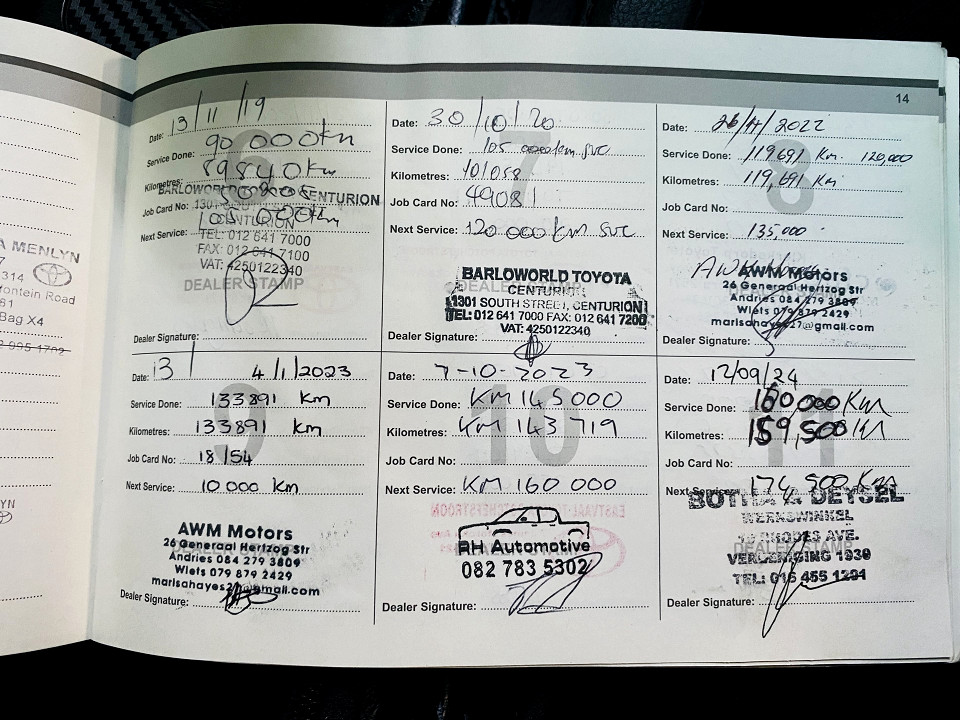 14
A MENLYN
7
314
ontein Road
81
Bag X4
2 995 1702
YN
6
Date: 13/11/19
Service Done: 90 000km
Kilometres: 89840km
BARLOWORLD CENTURION
Job Card No: 1301
CENTURION
Next Service: 105 000km
TEL: 012 641 7000
FAX: 012 641 7100
VAT: 4250122340
DEALER STAMP
Dealer Signature:
7
Date: 30/10/20
Service Done: 105 000km SVC
Kilometres: 101058
Job Card No: 49081
Next Service: 120 000 KM SVC
BARLOWORLD TOYOTA
CENTURION
1301 SOUTH STREET, CENTURION
TEL: 012 641 7000 FAX: 012 641 7200
VAT: 4250122340
Dealer Signature:
8
Date: 26/4/2022
Service Done: 119691 Km. 120,000
Kilometres: 119,691 Km
Job Card No:
Next Service: 135,000
AWM Motors
26 Generaal Hertzog Str
Andries 084 279 3809
Wiets 079 879 2429
marisahayes27@gmail.com
Dealer Signature:
9
Date: 13/ 4/1/2023
Service Done: 133891 km
Kilometres: 133891 km
Job Card No: 18/54
Next Service: 10 000 km
AWM Motors
26 Generaal Hertzog Str
Andries 084 279 3809
Wiets 079 879 2429
marisahayes27@gmail.com
Dealer Signature:
10
Date: 7-10-2023
Service Done: KM 145000
Kilometres: KM 143 719
Job Card No:
Next Service: KM 160 000
RH Automotive
082 783 5302
Dealer Signature:
11
Date: 12/09/24
Service Done: 160 000 KM
Kilometres: 159,500 KM
Job Card No:
Next Service: 174 500 Km
BOTHA & DEYSEL
WERKSWINKEL
RHODES AVE.
VEREENIGING 1939
DEALER STAMP
TEL: 016 455 1201
Dealer Signature: